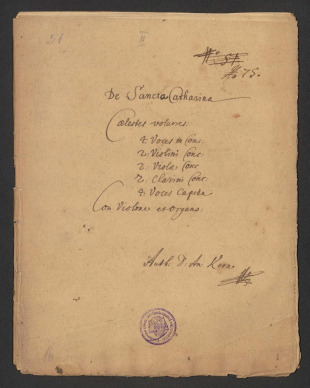 56
II
No 51
No 75.
De Sancta Catharina
Cælestes volucres.
4 Voces in Conc.
2. Violini Conc.
2. Violæ Conc
2. Clarini Conc.
4 Voces Capella
Con Violone et Organo.
Auth. D. An.